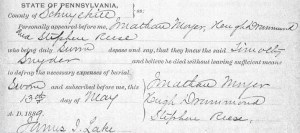 STATE OF PENNSYLVANIA,
County of Schuylkill
Personally appeared before me, Jonathan Moyer, Hugh Drummond
and Stephen Reese
who being duly sworn depose and say, that they knew the said Timothy
Snyder and believe he died without leaving sufficient means
to defray the necessary expenses of burial.
Sworn and subscribed before me, this Jonathan Moyer
13th day of May Hugh Drummond
A. D. 1889. Stephen Reese.
James J. Lake